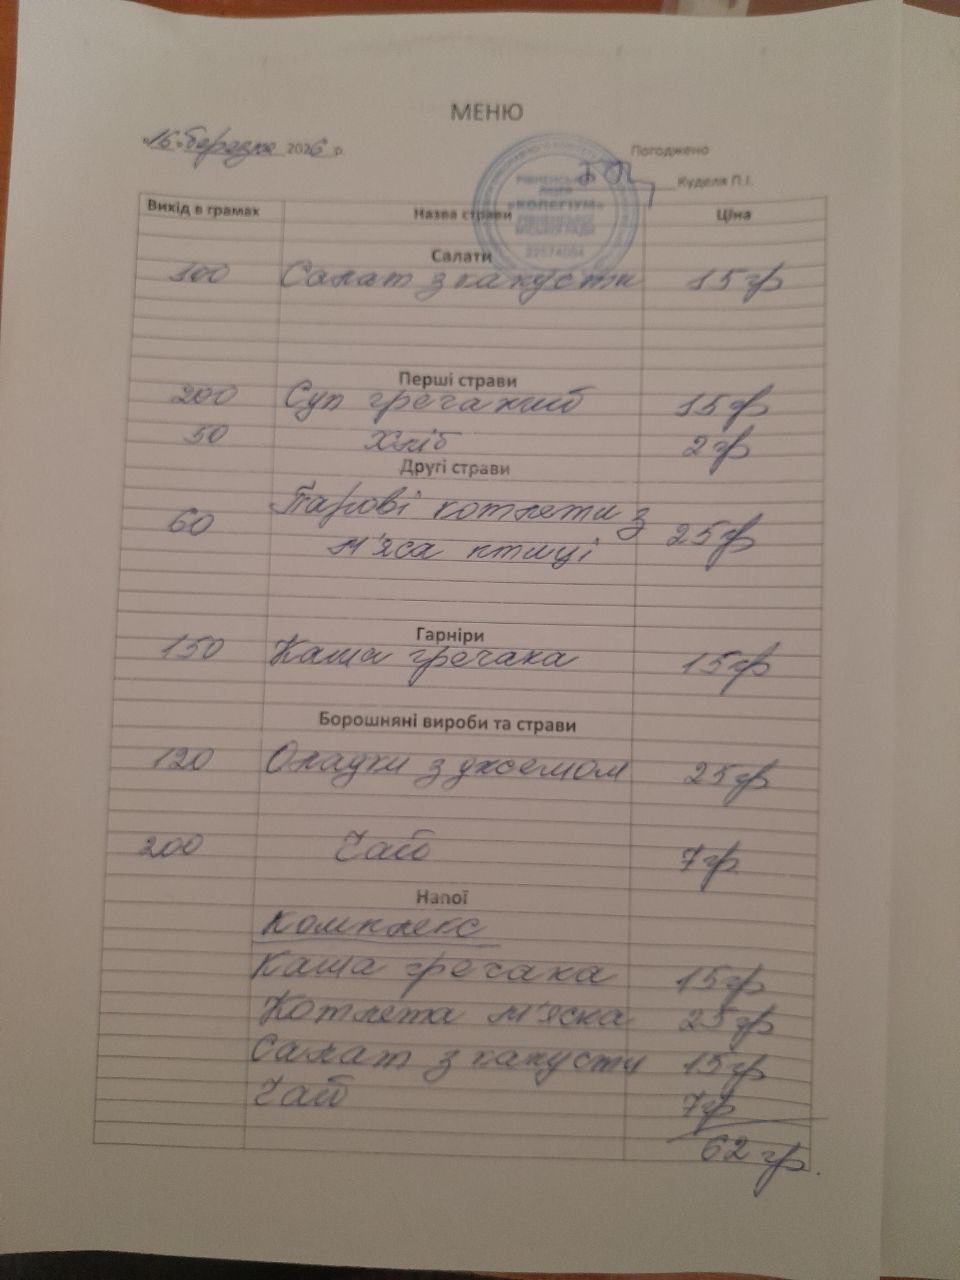 МЕНЮ
«16» березня 2026 р.
Погоджено
Куделя П.І.
Вихід в грамах Назва страви Ціна
РІВНЕНСЬКИЙ
«КОЛЕГІУМ»
РІВНЕНСЬКОЇ
МІСЬКОЇ РАДИ
22574004
Салати
100 Салат з капусти 15 гр
Перші страви
200 Суп гречаний 15 гр
50 Хліб 2 гр
Другі страви
60 Парові котлети з 25 гр
м'яса птиці
Гарніри
150 Каша гречана 15 гр
Борошняні вироби та страви
120 Оладки з джемом 25 гр
200 Чай 7 гр
Напої
Комплекс
Каша гречана 15 гр
Котлета м'ясна 25 гр
Салат з капусти 15 гр
Чай 7 гр
62 гр.